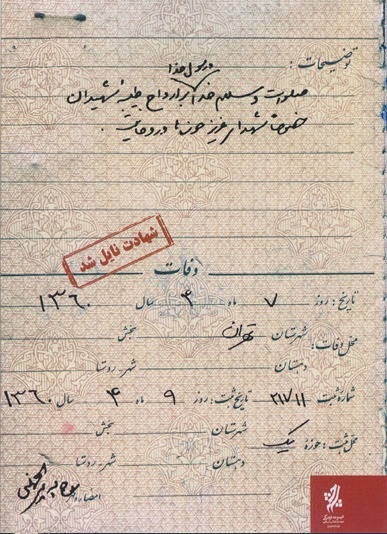 توضیحات: و رسول خدا
صلوات و سلام خدا بر ارواح طیبهٔ شهیدان
خصوصاً شهدای عزیز حوزه‌ها و روحانیت.
شهادت نایل شد
وفات
تاریخ: روز ۷ ماه ۴ سال ۱۳۶۰
محل وفات: شهرستان تهران بخش
دهستان شهر-روستا
شماره ثبت ۲۱۷۱۱ تاریخ ثبت: روز ۹ ماه ۴ سال ۱۳۶۰
محل ثبت: حوزه یک شهرستان بخش
دهستان شهر-روستا